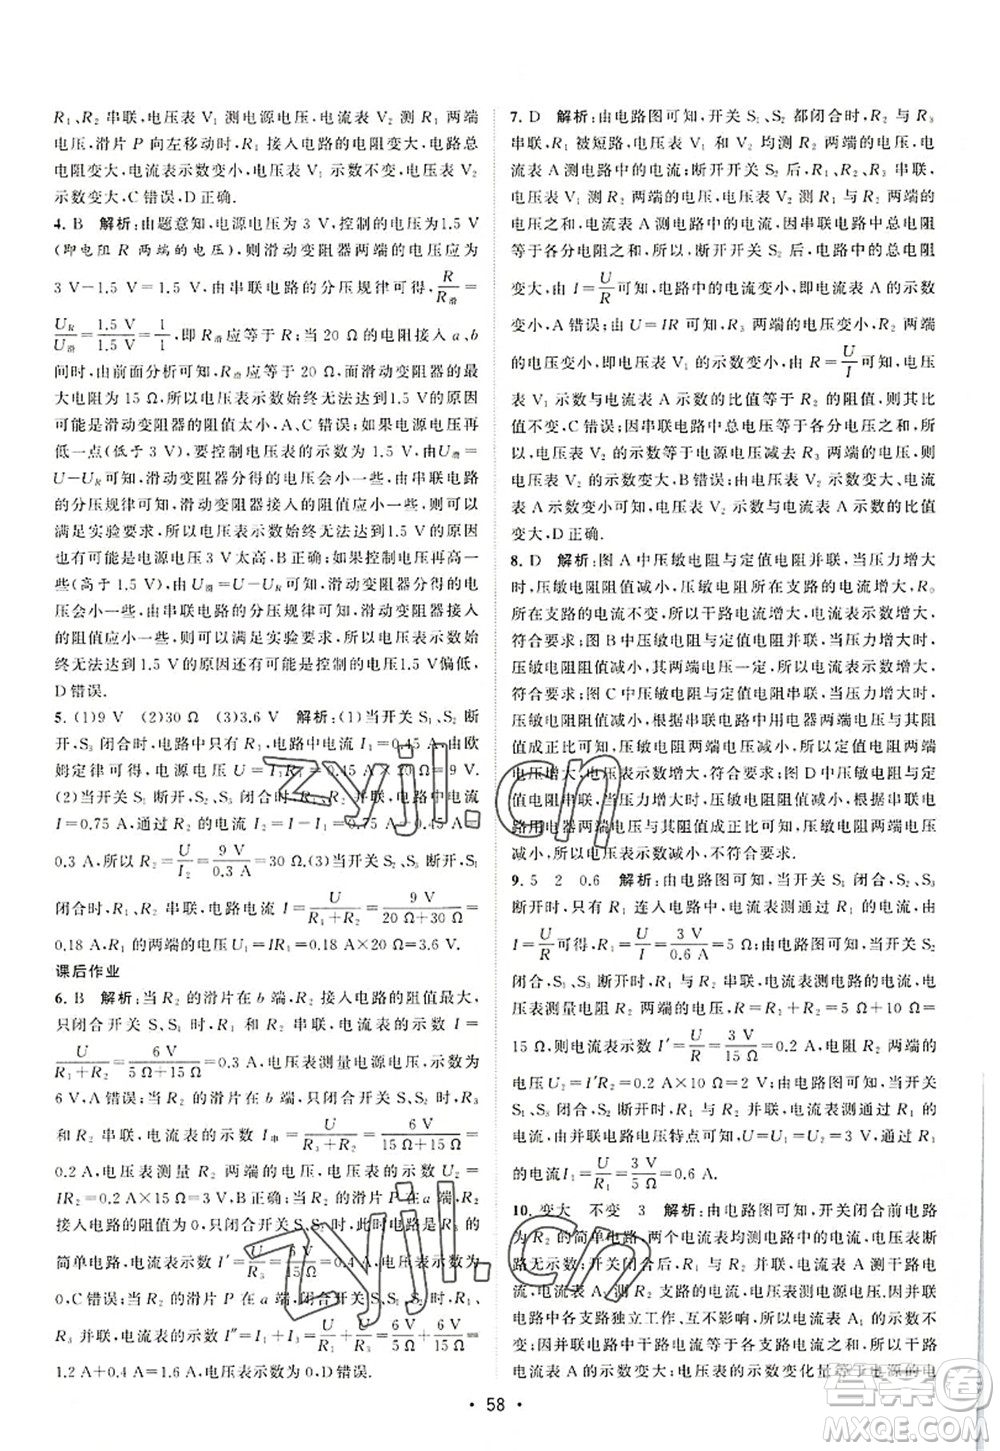 R₁、R₂ 串联,电压表 V₁ 测电源电压,电流表测 R₁ 两端
电压,滑片 P 向左移动时,R₁ 接入电路的电阻变大,电路总
电阻变大,电流表示数变小,电压表 V₁ 示数不变,电压表 V₂
示数变大,C 错误,D 正确.
4. B 解析:由题意知,电源电压为 3 V,控制的电压为 1.5 V
(即电阻 R 两端的电压),则滑动变阻器两端的电压应为
3 V－1.5 V＝1.5 V,由串联电路的分压规律可得 R/R滑＝
U_R/U滑＝1.5 V/1.5 V＝1/1,即 R滑应等于 R;当 20 Ω 的电阻接入 a、b
间时,由前面分析可知,R滑应等于 20 Ω,而滑动变阻器的最
大电阻为 15 Ω,所以电压表示数始终无法达到 1.5 V 的原因
可能是滑动变阻器的阻值太小,A、C 错误;如果电源电压调
低一点(低于 3 V),要控制电压表示数为 1.5 V,由 U滑＝
U－U_R 可知,滑动变阻器分得的电压会小一些,由串联电路
的分压规律可知,滑动变阻器接入的阻值小一些,可能满足
实验要求,所以电压表示数始终无法达到 1.5 V 的原因可能
是电源电压 3 V 太高,B 正确;如果滑动变阻器分得的电压高一
些(高于 1.5 V),在电源电压一定时,电压表控制的电
压会小一些,由串联电路的分压规律可知,滑动变阻器接入
的阻值应大一些,可能满足实验要求,所以电压表示数始
终无法达到 1.5 V 的原因可能是控制的电压 1.5 V 偏低,
D 错误.
5. (1)9 V (2)30 Ω (3)3.6 V 解析:(1)当开关 S₁、S₂ 断
开、S₃ 闭合时,电路中只有 R₁,电路中电流 I₁＝0.45 A,由欧
姆定律可得,电源电压 U＝I₁R₁＝0.45 A×20 Ω＝9 V.
(2)当开关 S₁ 断开,S₂、S₃ 闭合时,R₁、R₂ 并联,电路中电流
I＝0.75 A,通过 R₂ 的电流 I₂＝I－I₁＝0.75 A－0.45 A＝
0.3 A,所以 R₂＝U/I₂＝9 V/0.3 A＝30 Ω.(3)当开关 S₂、S₃ 断开,S₁
闭合时,R₁、R₂ 串联,电路电流 I＝U/(R₁＋R₂)＝9 V/(20 Ω＋30 Ω)＝
0.18 A,R₁ 的两端的电压 U₁＝IR₁＝0.18 A×20 Ω＝3.6 V.
课后作业
6. B 解析:当 R₂ 的滑片在 b 端,R₂ 接入电路的阻值最大,
只闭合开关 S、S₁ 时,R₁ 和 R₂ 串联,电流表示数 I＝
U/(R₁＋R₂)＝6 V/(5 Ω＋15 Ω)＝0.3 A,电压表测量电源电压,示数为
6 V,A 错误;当 R₂ 的滑片在 b 端,只闭合开关 S 时,R₃
和 R₂ 串联,电流表的示数 I串＝U/(R₃＋R₂)＝6 V/(15 Ω＋15 Ω)＝
0.2 A,电压表测量 R₂ 两端的电压,电压表的示数 U₂＝
IR₂＝0.2 A×15 Ω＝3 V,B 正确;当 R₂ 的滑片 P 在 a 端,R₂
接入电路的阻值为 0,只闭合开关 S、S₂ 时,此时电路为 R₃
的简单电路,电流表示数 I′＝U/R₃＝6 V/15 Ω＝0.4 A,电压表示数为
0,C 错误;当 R₂ 的滑片 P 在 a 端,闭合开关 S、S₁、S₂ 时,R₁、
R₃ 并联,电流表示数 I″＝I₁＋I′＝U/R₁＋I′＝6 V/5 Ω＋0.4 A＝
1.2 A＋0.4 A＝1.6 A,电压表示数为 0,D 错误.
7. D 解析:由电路图可知,开关 S₁、S₂ 都闭合时,R₂ 与 R₃
串联,R₁ 被短路,电压表 V₁ 和电压表 V₂ 测 R₂ 两端的电压,
电流表 A 测电路中的电流;断开开关 S₂,R₁、R₂、R₃ 串联,电
压表 V₁ 测 R₂ 两端的电压,电压表 V₂ 测 R₁ 和 R₂ 两端的
电压之和,电流表 A 测电路中的电流,因串联电路中总电阻
等于各分电阻之和,所以,断开开关 S₂,电路中的总电阻
变大,由 I＝U/R可知,电路中的电流变小,电流表 A 的示数
变小,A 错误;由 U＝IR 可知,R₂ 两端的电压变小,R₃ 两端
的电压变小,电压表 V₁ 的示数变小,B 错误;由 R＝U/I,电压
表 V₁ 示数与电流表 A 示数的比值等于 R₂ 的阻值,R₂ 阻值
不变,C 错误;因串联电路中总电压等于各分电压之和,所以
电压表 V₂ 的示数等于电源电压减去 R₃ 两端的电压,则电压
表 V₂ 示数变大,由电流表示数变小可知,电压表 V₂ 示数与
电流表 A 示数的比值变大,电压表 V₂ 示数与电流表 A 示数的比值
变大,D 正确.
8. D 解析:图 A 中压敏电阻与定值电阻并联,当压力增大
时,压敏电阻阻值减小,压敏电阻所在支路的电流增大,R₀
所在支路的电流不变,所以干路电流增大,电流表示数增大,
符合要求;图 B 中压敏电阻与定值电阻并联,当压力增大时,
压敏电阻阻值减小,压敏电阻两端电压一定,所以电流表示数增大,
符合要求;图 C 中压敏电阻与定值电阻串联,当压力增大
时,压敏电阻阻值减小,根据串联电路中用电器两端电压与
电阻成正比可知,压敏电阻两端电压减小,定值电阻两端电
压增大,电压表示数变大,符合要求;图 D 中压敏电阻与定值
电阻串联,当压力增大时,压敏电阻阻值减小,根据串联电
路用电器两端电压与阻值成正比可知,压敏电阻两端电压减
小,所以电压表示数减小,不符合要求.
9. 5 2 0.6 解析:由电路图可知,当开关 S₁ 闭合,S₂、S₃
断开时,只有 R₁ 连入电路中,电流表测电路中的电流,
由 I＝U/R可得,R₁＝U/I＝3 V/0.6 A＝5 Ω;由电路图可知,当开关 S₂
闭合,S₁、S₃ 断开时,R₁ 与 R₂ 串联,电流表测电路中的电流,
电压表测量电阻 R₂ 两端的电压,电路中的电阻 R＝R₁＋R₂＝5 Ω＋10 Ω＝
15 Ω,则电流表示数 I′＝U/R＝3 V/15 Ω＝0.2 A,电阻 R₂ 两端的
电压 U₂＝I′R₂＝0.2 A×10 Ω＝2 V;由电路图可知,当开关
S₂ 断开,S₁、S₃ 闭合时,R₁ 与 R₃ 并联,电流表测通过 R₁ 的电
流,由并联电路电压特点可知,U₁＝U＝3 V,则通过电阻 R₁
的电流 I₁＝U₁/R₁＝3 V/5 Ω＝0.6 A.
10. 变大 不变 3 解析:由电路图可知,开关闭合前电路为
R₂ 的简单电路,两个电流表均测电路中的电流,电压表
无示数;闭合开关后,两电阻并联,电流表 A 测干路电
流,电流表 A₁ 测 R₂ 支路的电流,电压表测电源电压;因并
联电路中各支路独立工作、互不影响,所以电流表 A₁ 的示数不
变;因并联电路中干路电流等于各支路电流之和,所以干路
电流表 A 的示数变大;电压表的示数变化量等于电源的电
58
zyjl.cn
zyjl.cn
答案圈
MXQE.COM